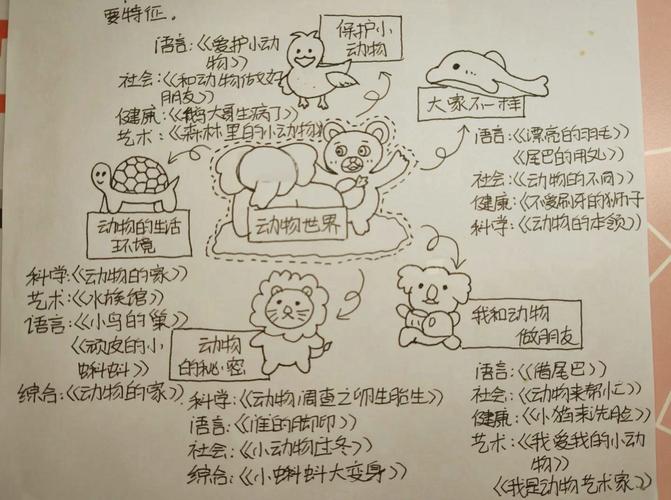 要特征。
保护小
动物
语言:《爱护小动
物》
社会:《和动物做好
朋友》
健康:《鹅大哥生病了》
艺术:《森林里的小动物》
大家不一样
语言:《漂亮的羽毛》
《尾巴的用处》
社会:《动物的不同》
健康:《不爱刷牙的狮子
科学:《动物的本领》
动物世界
动物的生活
环境
科学:《动物的家》
艺术:《水族馆》
语言:《小鸟的巢》
《顽皮的小
蝌蚪》
综合:《动物的家》
动物
的秘密
科学:《动物调查之卵生胎生》
语言:《谁的脚印》
社会:《小动物过冬》
综合:《小蝌蚪大变身》
我和动物
做朋友
语言:《借尾巴》
社会:《动物来帮忙》
健康:《小猫来洗脸》
艺术:《我爱我的小动
物》
《我是动物艺术家》